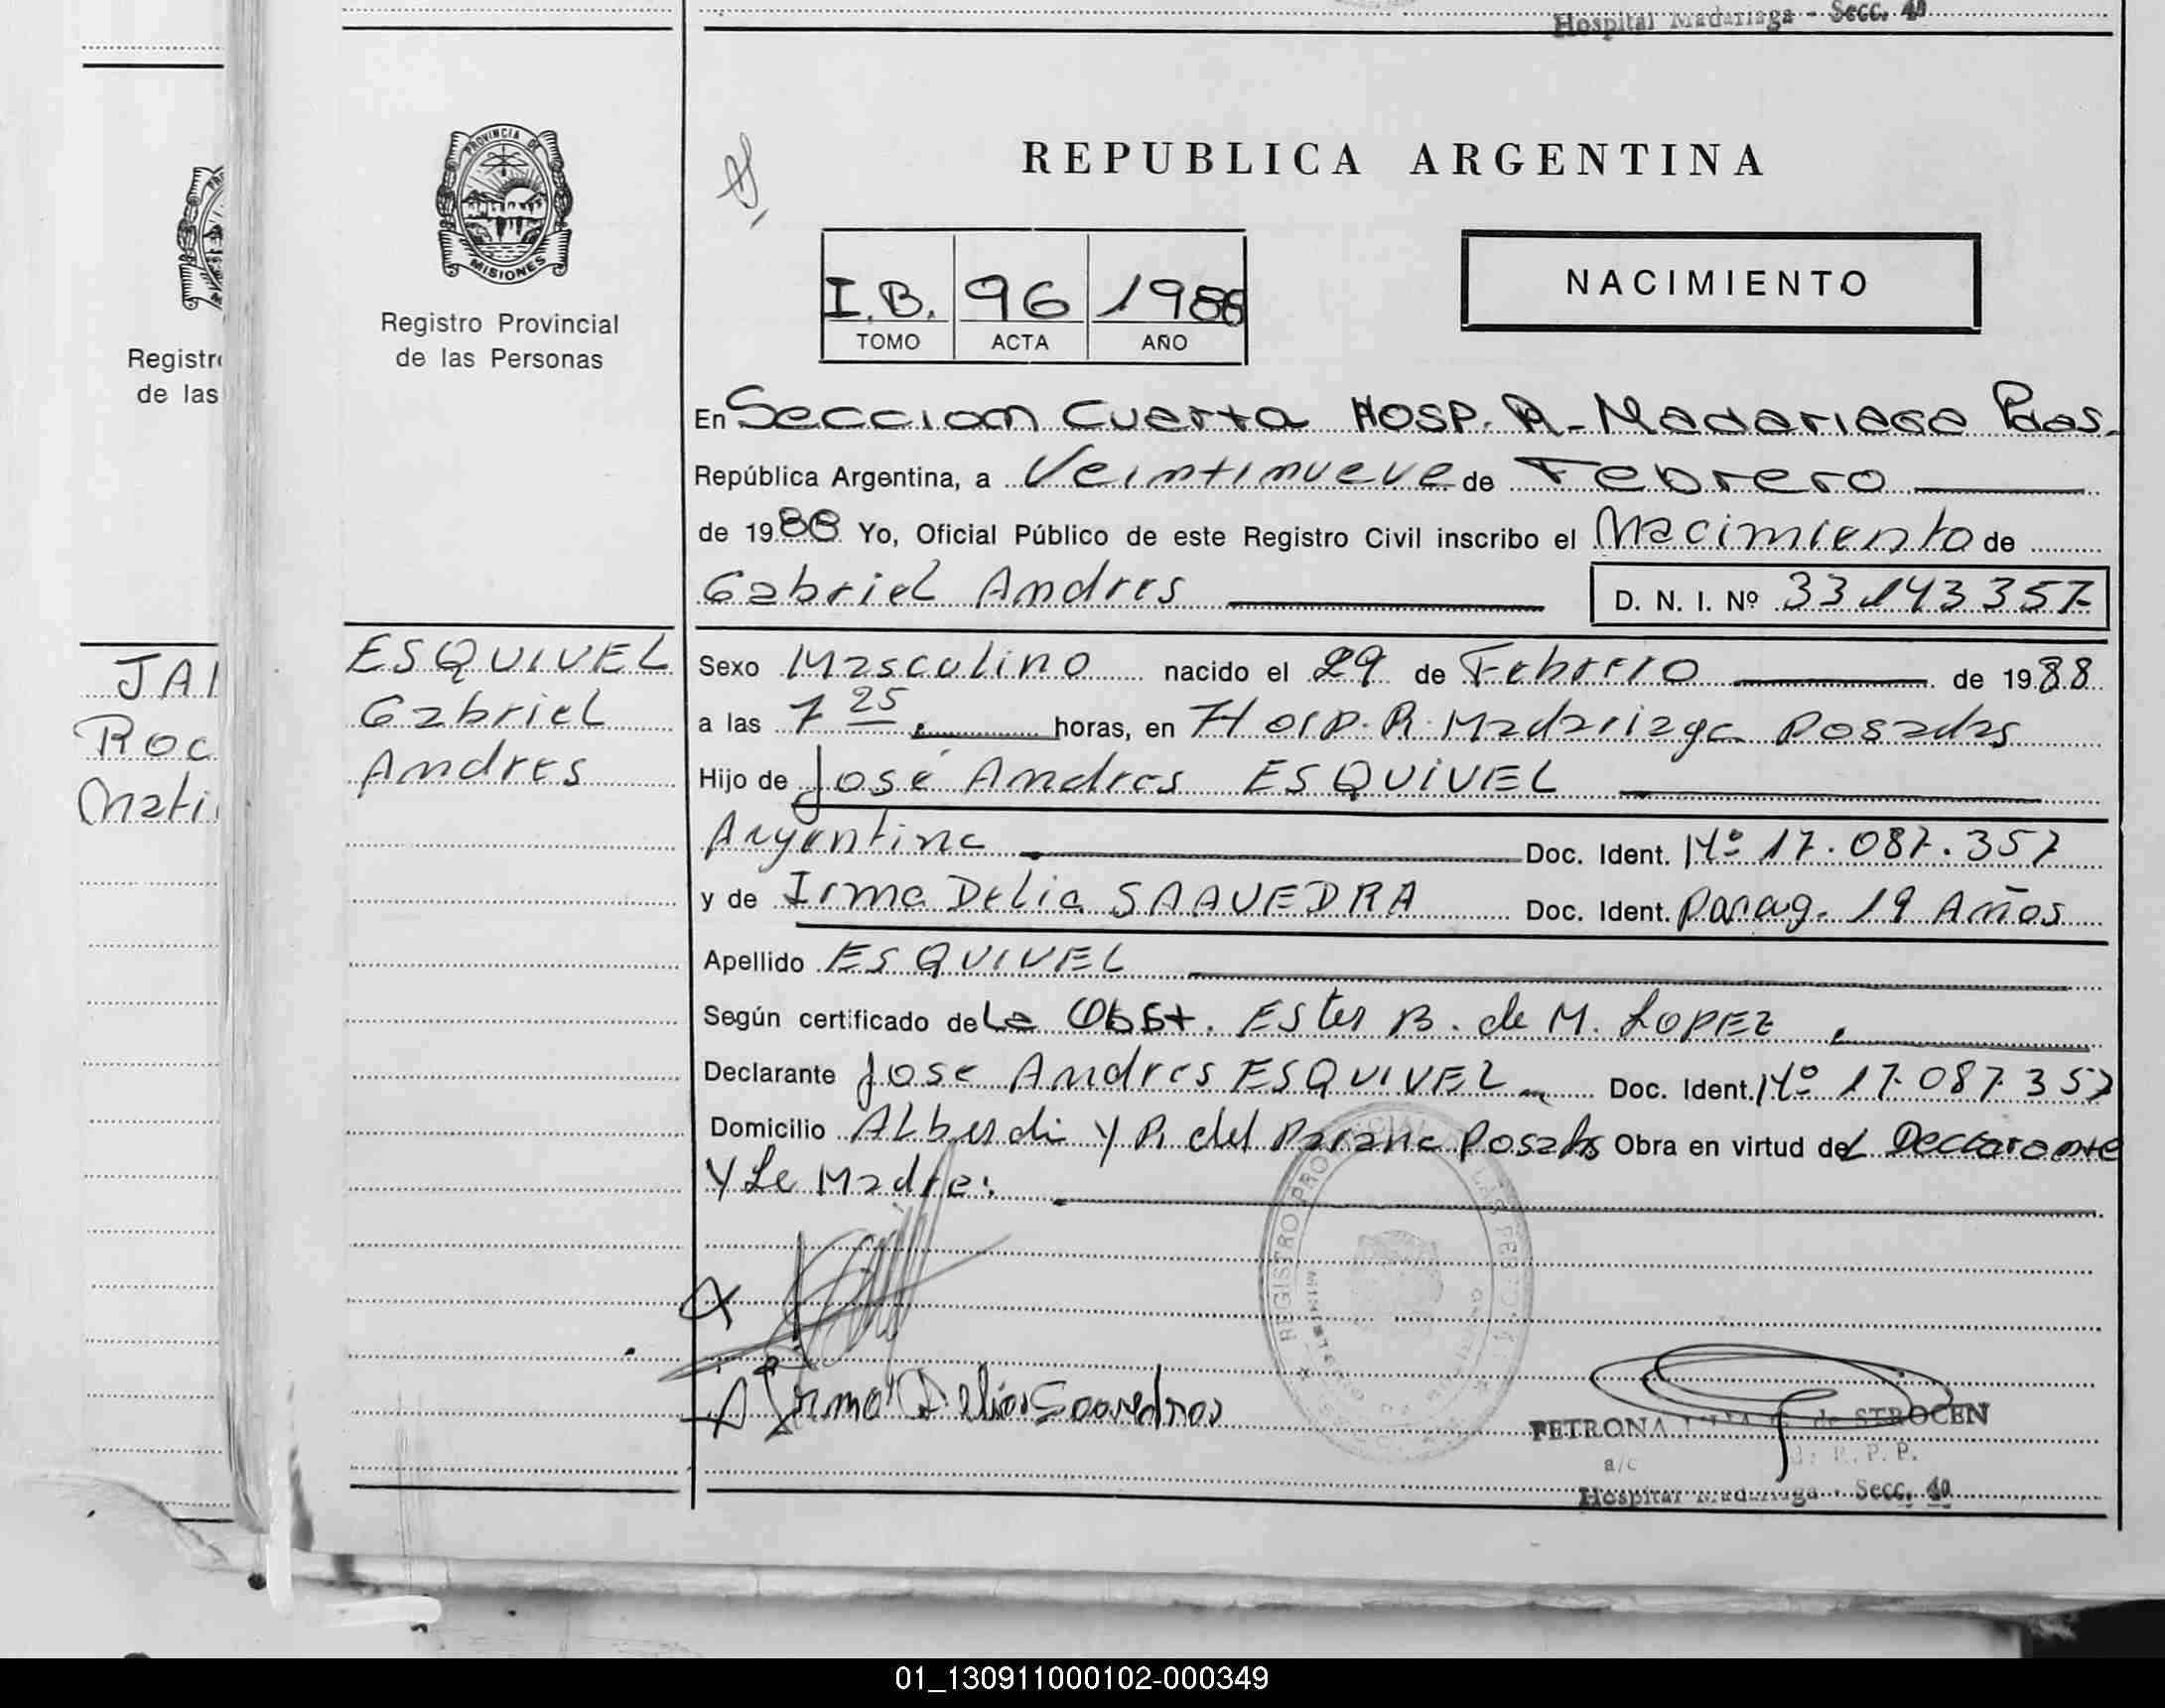 Hospital Madariaga - Secc. 4a
PROVINCIA DE
MISIONES
Registro Provincial
de las Personas
Registr
de las
REPUBLICA ARGENTINA
I.B. 96 1988
TOMO ACTA AÑO
NACIMIENTO
En Seccion Cuarta Hosp. R. Madariaga Pdas.
República Argentina, a Veintinueve de Febrero
de 1988 Yo, Oficial Público de este Registro Civil inscribo el Nacimiento de
Gabriel Andres D. N. I. Nº 33.143.357
JAI
Roc
Mati
ESQUIVEL
Gabriel
Andres
Sexo Masculino nacido el 29 de Febrero de 1988
a las 7 25 horas, en Hosp. R. Madariaga Posadas
Hijo de José Andres ESQUIVEL
Argentina Doc. Ident. Nº 17.087.357
y de Irma Delia SAAVEDRA Doc. Ident. Parag. 19 Años
Apellido ESQUIVEL
Según certificado de La Obst. Ester B. de M. LOPEZ
Declarante Jose Andres ESQUIVEL Doc. Ident. Nº 17.087.357
Domicilio Alberdi y R. del Parana Posadas Obra en virtud del Declarante
y La Madre.
Irma Delia Saavedra
REGISTRO PROVINCIAL DE LAS PERSONAS
MINISTERIO DE GOBIERNO
PETRONA de STROCEN
a/c R. P. P.
Hospital Madariaga - Secc. 4a
01_130911000102-000349